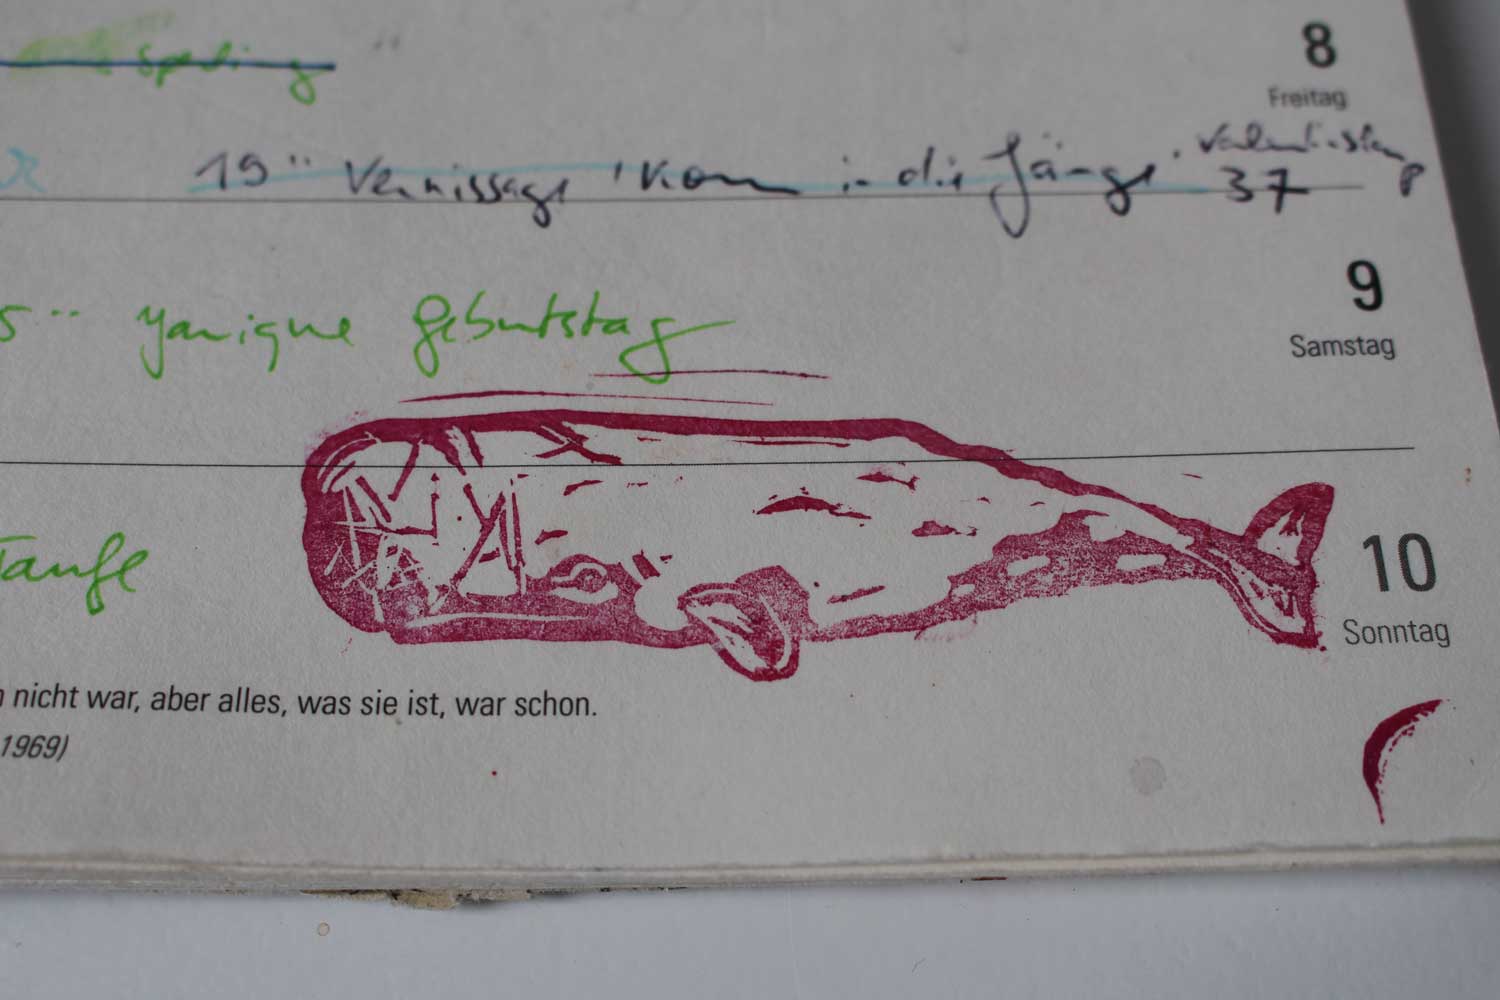 8
Freitag
19 Vernissage 'Kom in die Gänge' 37
9
Samstag
Yanique Geburtstag
10
Sonntag
Taufe
nicht war, aber alles, was sie ist, war schon.
1969)